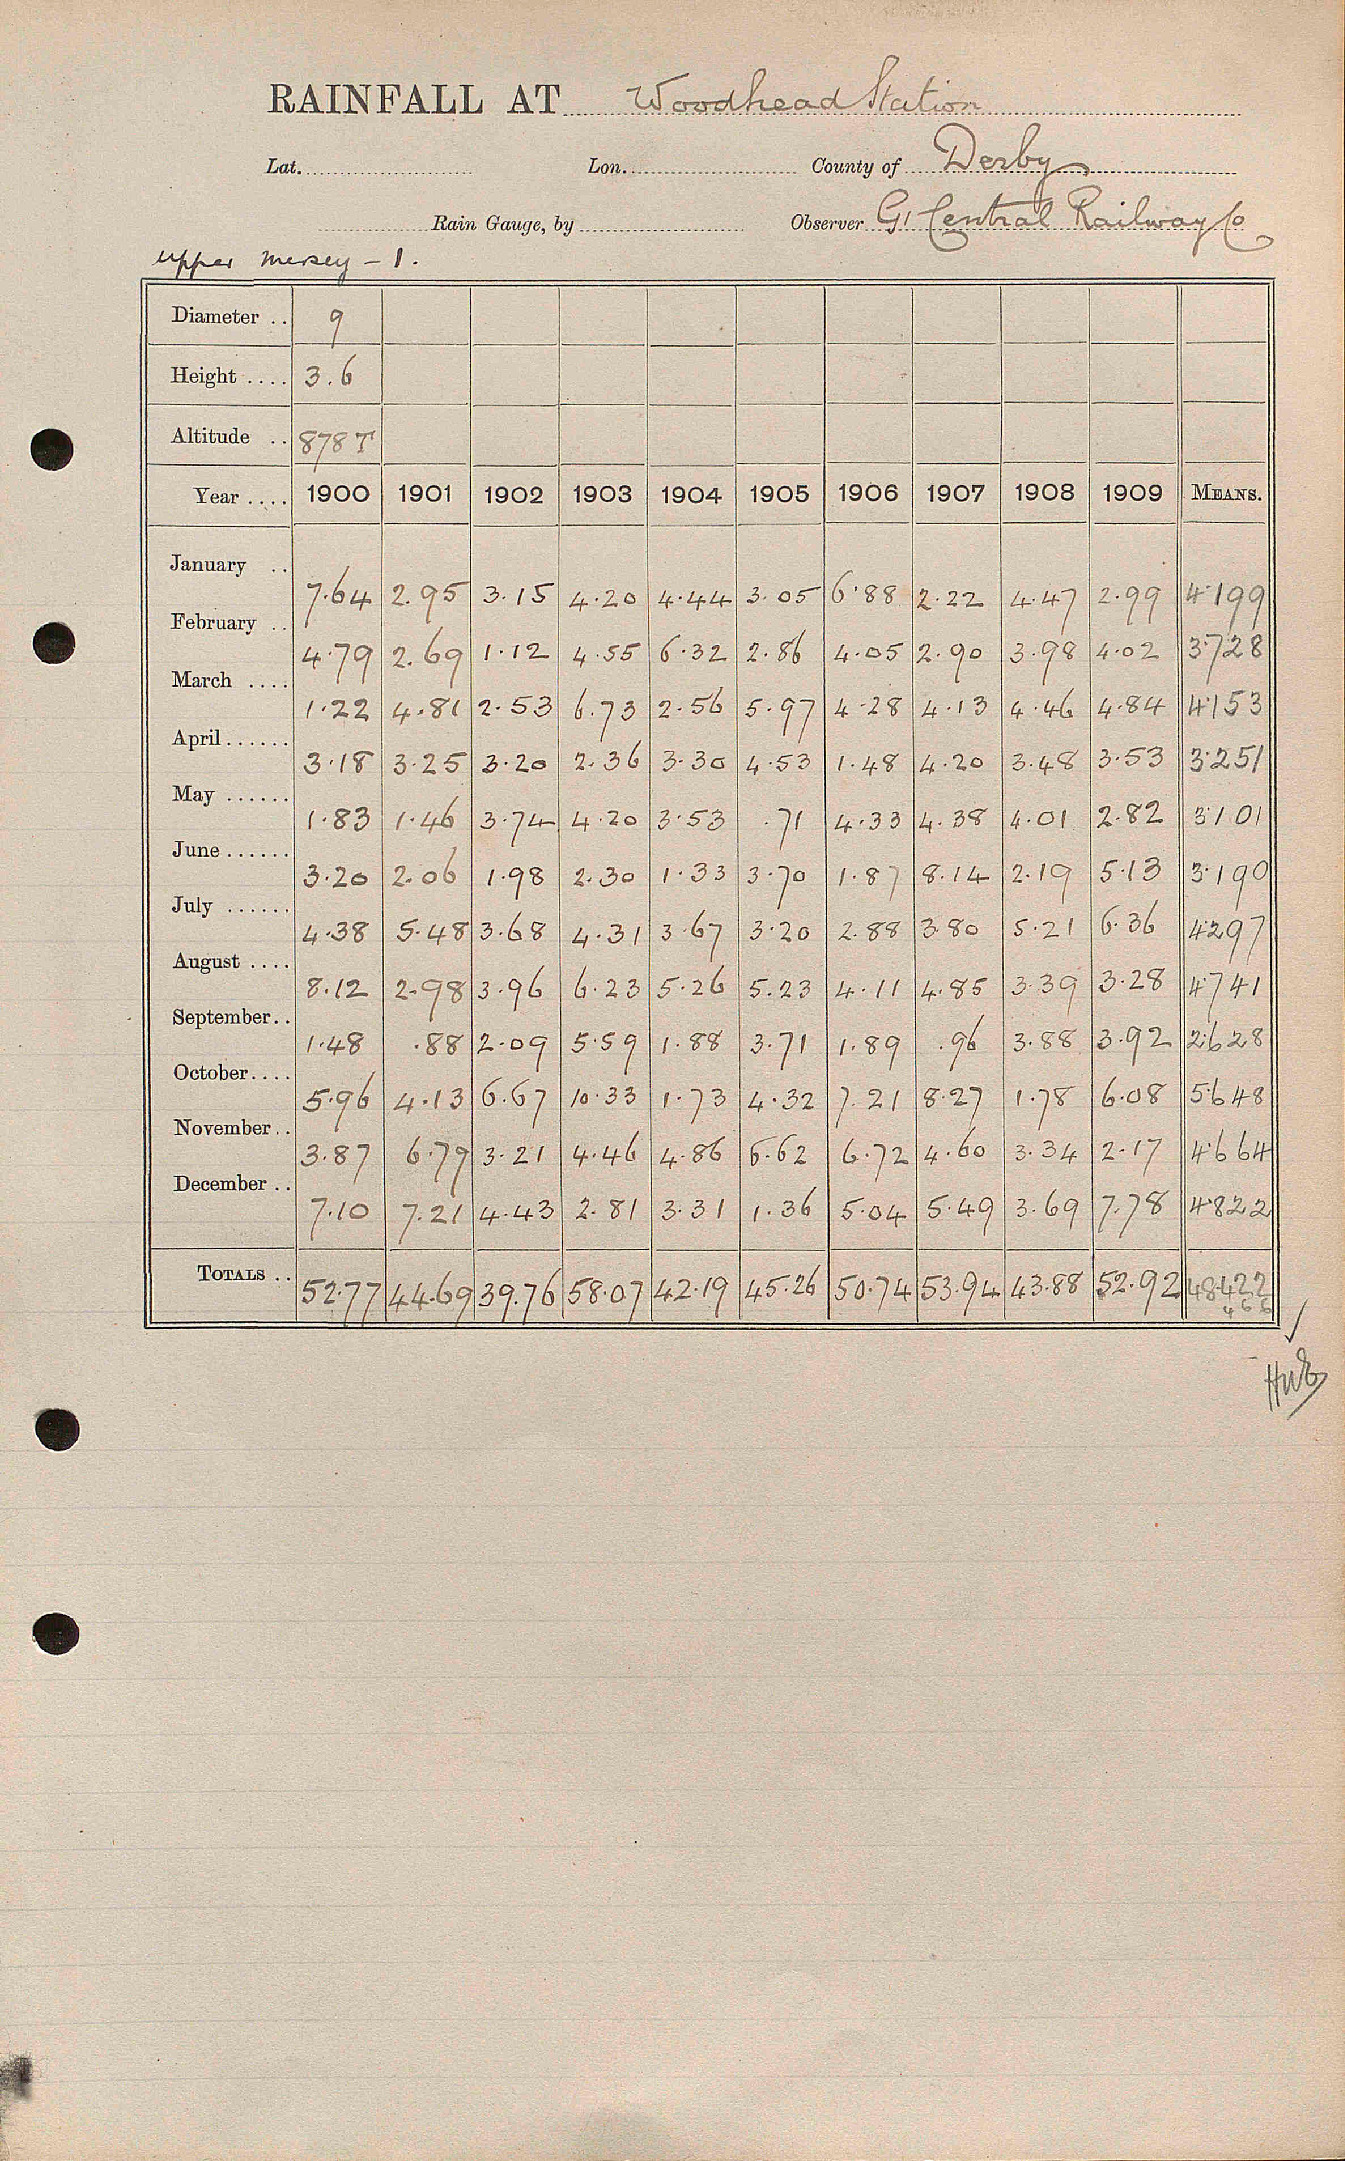 RAINFALL AT Woodhead Station
Lat. Lon. County of Derby
Rain Gauge, by Observer Gt Central Railway Co
Upper Mersey - 1.
Diameter .. 9
Height .... 3.6
Altitude .. 878 T
Year .... 1900 1901 1902 1903 1904 1905 1906 1907 1908 1909 MEANS.
January .. 7.64 2.95 3.15 4.20 4.44 3.05 6.88 2.22 4.47 2.99 4.199
February .. 4.79 2.69 1.12 4.55 6.32 2.86 4.05 2.90 3.98 4.02 3.728
March .... 1.22 4.81 2.53 6.73 2.56 5.97 4.28 4.13 4.46 4.84 4.153
April...... 3.18 3.25 3.20 2.36 3.30 4.53 1.48 4.20 3.48 3.53 3.251
May ...... 1.83 1.46 3.74 4.20 3.53 .71 4.33 4.38 4.01 2.82 3.101
June...... 3.20 2.06 1.98 2.30 1.33 3.70 1.87 8.14 2.19 5.13 3.190
July ...... 4.38 5.48 3.68 4.31 3.67 3.20 2.88 3.80 5.21 6.36 4.297
August .... 8.12 2.98 3.96 6.23 5.26 5.23 4.11 4.85 3.39 3.28 4.741
September.. 1.48 .88 2.09 5.59 1.88 3.71 1.89 .96 3.88 3.92 2.628
October.... 5.96 4.13 6.67 10.33 1.73 4.32 7.21 8.27 1.78 6.08 5.648
November.. 3.87 6.79 3.21 4.46 4.86 6.62 6.72 4.60 3.34 2.17 4.664
December .. 7.10 7.21 4.43 2.81 3.31 1.36 5.04 5.49 3.69 7.78 4.822
TOTALS .. 52.77 44.69 39.76 58.07 42.19 45.26 50.74 53.94 43.88 52.92 48.422